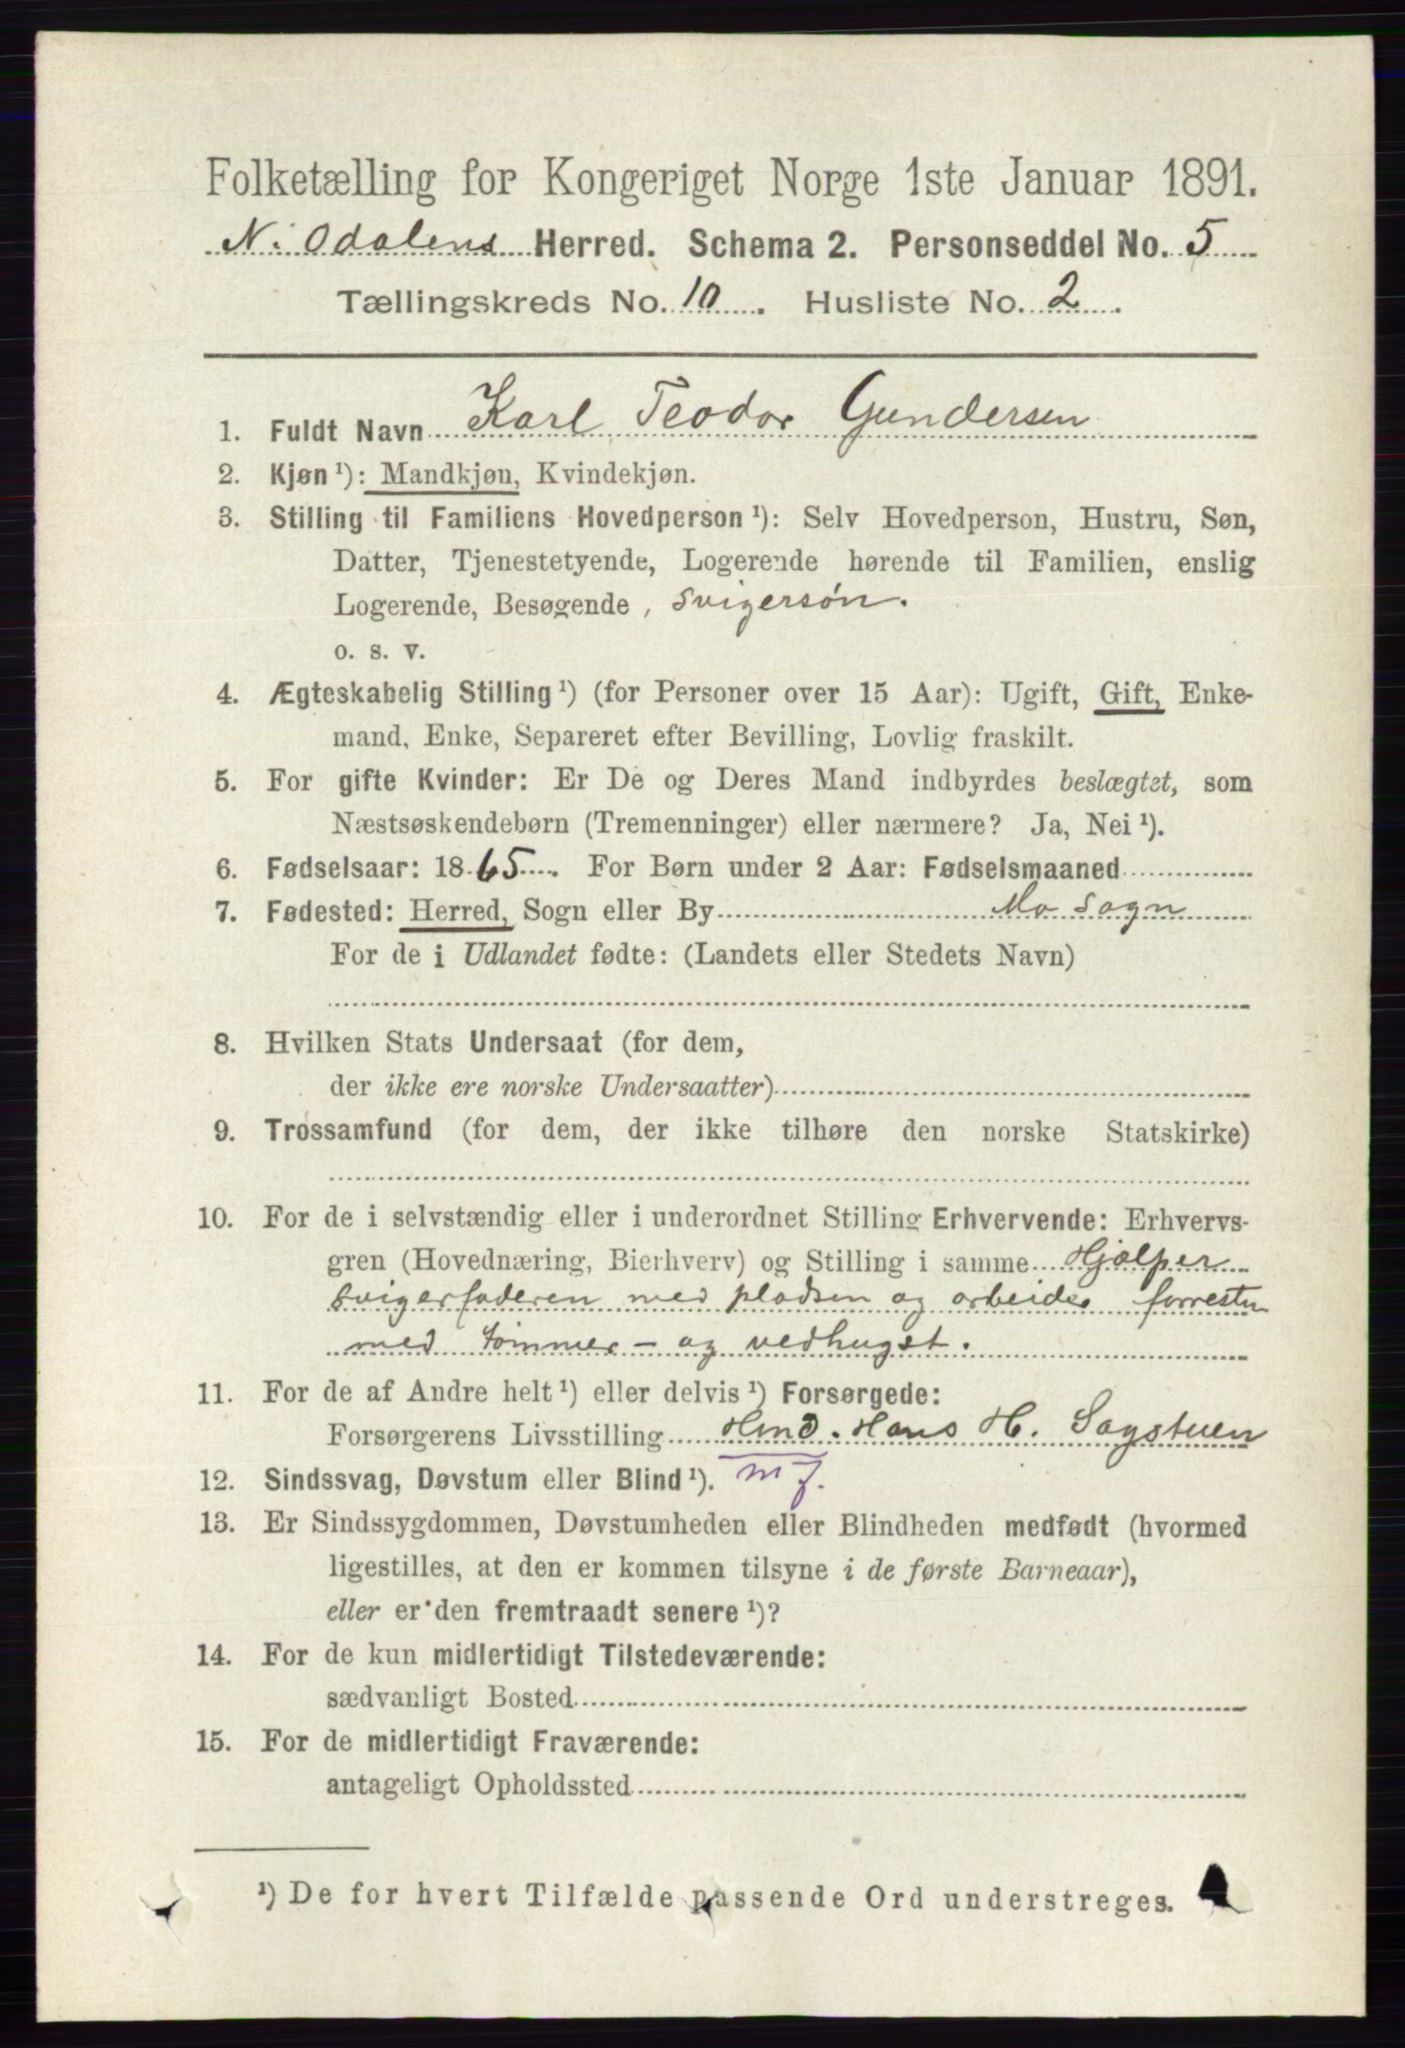 Folketælling for Kongeriget Norge 1ste Januar 1891.
N. Odalens Herred. Schema 2. Personseddel No. 5
Tællingskreds No. 10. Husliste No. 2.
1. Fuldt Navn Karl Teodor Gundersen
2. Kjøn ¹): Mandkjøn, Kvindekjøn.
3. Stilling til Familiens Hovedperson ¹): Selv Hovedperson, Hustru, Søn,
Datter, Tjenestetyende, Logerende hørende til Familien, enslig
Logerende, Besøgende, svigersøn.
o. s. v.
4. Ægteskabelig Stilling ¹) (for Personer over 15 Aar): Ugift, Gift, Enke-
mand, Enke, Separeret efter Bevilling, Lovlig fraskilt.
5. For gifte Kvinder: Er De og Deres Mand indbyrdes beslægtet, som
Næstsøskendebørn (Tremenninger) eller nærmere? Ja, Nei ¹).
6. Fødselsaar: 1865. For Børn under 2 Aar: Fødselsmaaned
7. Fødested: Herred, Sogn eller By Mo Sogn
For de i Udlandet fødte: (Landets eller Stedets Navn)
8. Hvilken Stats Undersaat (for dem,
der ikke ere norske Undersaatter)
9. Trossamfund (for dem, der ikke tilhøre den norske Statskirke)
10. For de i selvstændig eller i underordnet Stilling Erhvervende: Erhvervs-
gren (Hovednæring, Bierhverv) og Stilling i samme Hjælper
svigerfaderen med pladsen og arbeider forresten
med tømmer- og vedhugst.
11. For de af Andre helt ¹) eller delvis ¹) Forsørgede:
Forsørgerens Livsstilling Hmd. Hans H. Sagstuen
12. Sindssvag, Døvstum eller Blind ¹). mf.
13. Er Sindssygdommen, Døvstumheden eller Blindheden medfødt (hvormed
ligestilles, at den er kommen tilsyne i de første Barneaar),
eller er den fremtraadt senere ¹)?
14. For de kun midlertidigt Tilstedeværende:
sædvanligt Bosted
15. For de midlertidigt Fraværende:
antageligt Opholdssted
¹) De for hvert Tilfælde passende Ord understreges.